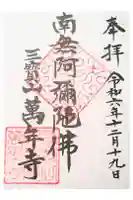 奉拝 令和六年十二月十九日
南無阿彌陀佛
三寳山萬年寺